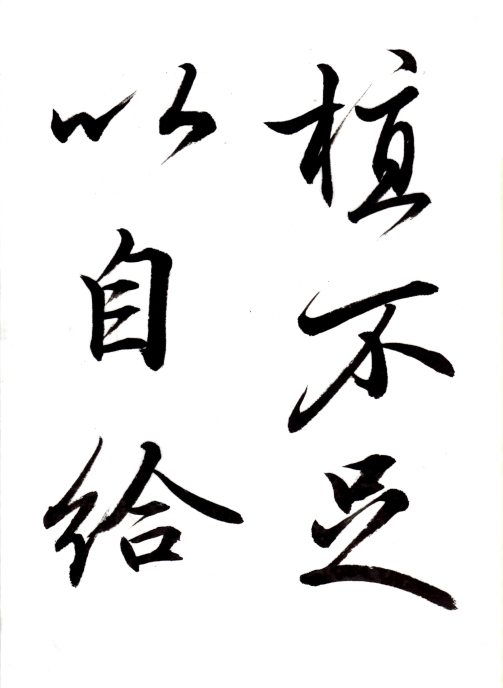 植不足
以自给